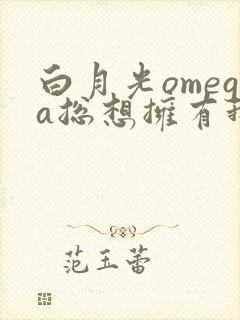 白月光omeg
a总想拥有我
范玉蕾